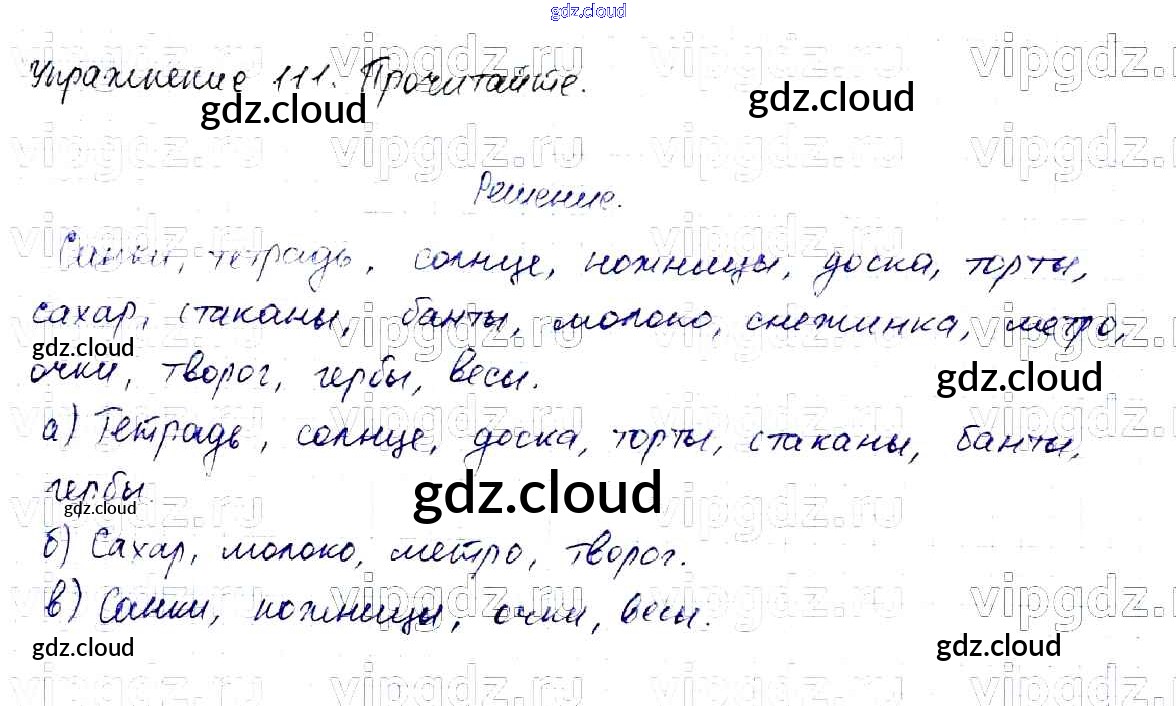 gdz.cloud
Упражнение 111. Прочитайте.
gdz.cloud gdz.cloud
Решение.
Санки, тетрадь, солнце, ножницы, доска, торты,
сахар, стаканы, банты, молоко, снежинка, метро,
gdz.cloud
очки, творог, гербы, весы.
gdz.cloud
а) Тетрадь, солнце, доска, торты, стаканы, банты,
гербы.
gdz.cloud
gdz.cloud
б) Сахар, молоко, метро, творог.
в) Санки, ножницы, очки, весы.
gdz.cloud gdz.cloud
vipgdz.ru